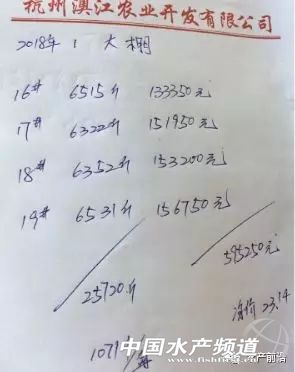 杭州滇江农业开发有限公司
2018年 1 大棚
16# 6515斤 133350元
17# 6322斤 151950元
18# 6352斤 153200元
19# 6531斤 156750元
25720斤 595250元
价 23.14
1071斤/亩
中国水产频道
www.fishfirst.cn
产前沿